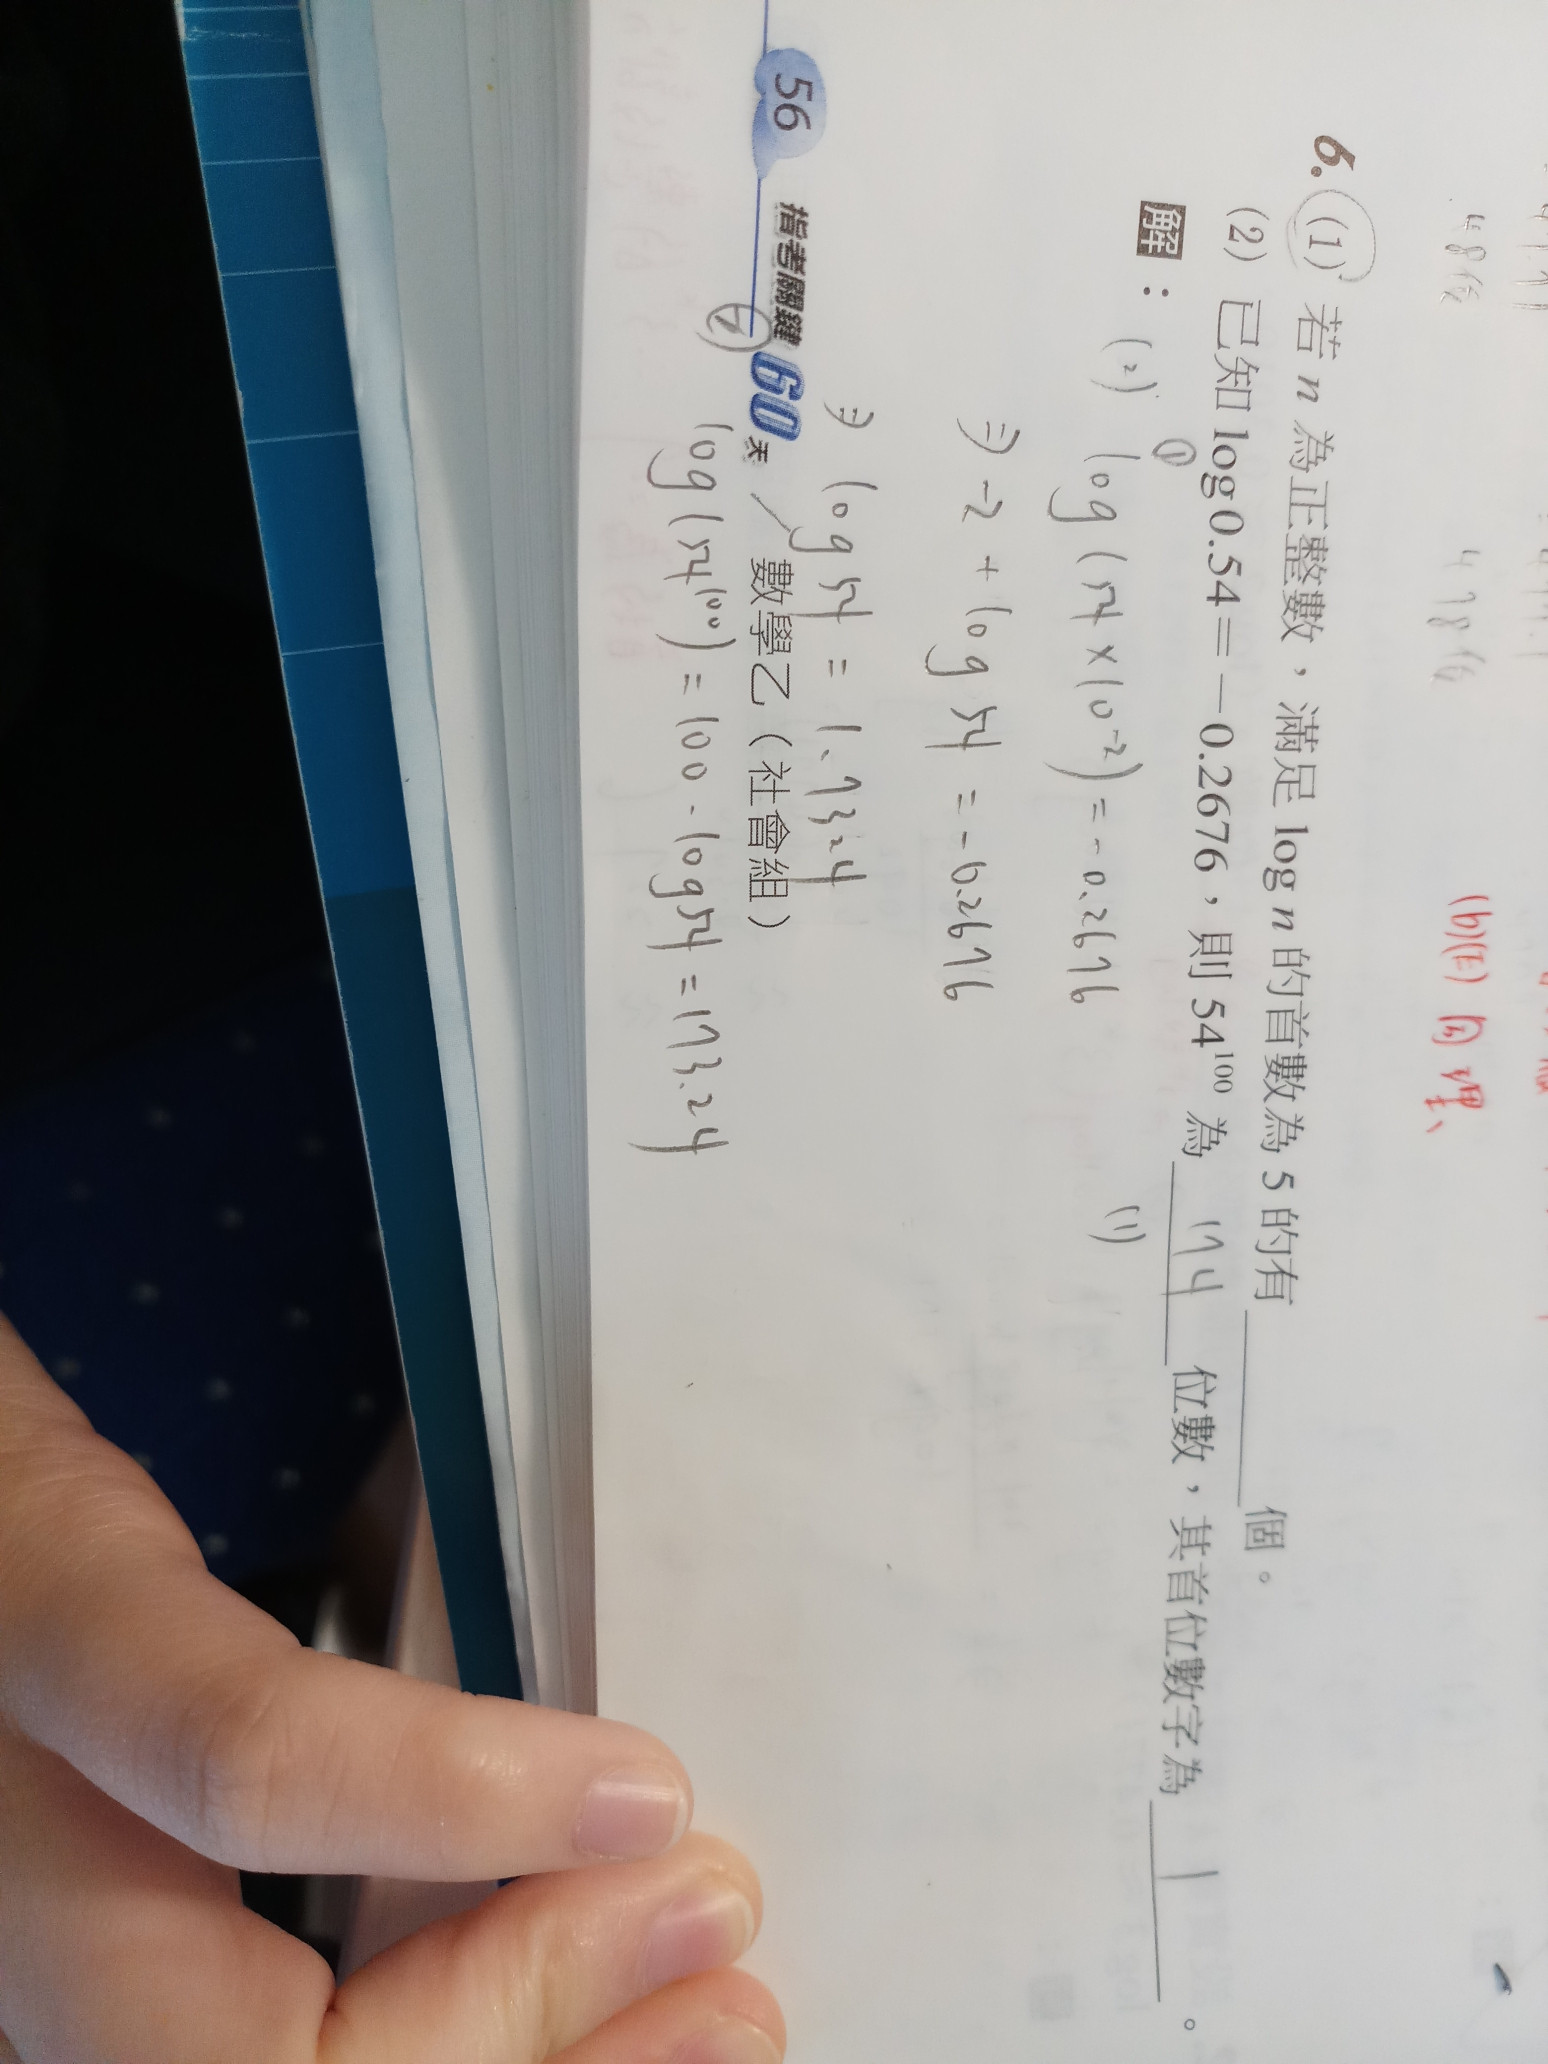 48位 478位 (b)(E)同理、
6. (1) 若 n 為正整數，滿足 log n 的首數為 5 的有______個。
(2) 已知 log 0.54 = －0.2676，則 54¹⁰⁰ 為 174 位數，其首位數字為 1 。
解：(2) ① log(54×10⁻²) = -0.2676
⇒ -2 + log 54 = -0.2676
⇒ log 54 = 1.7324
② log(54¹⁰⁰) = 100·log54 = 173.24
(1)
56 指考關鍵60天 數學乙（社會組）